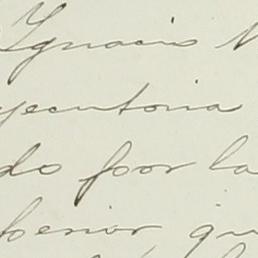 Ygnacio
yecutoria
do por la
perior, qu